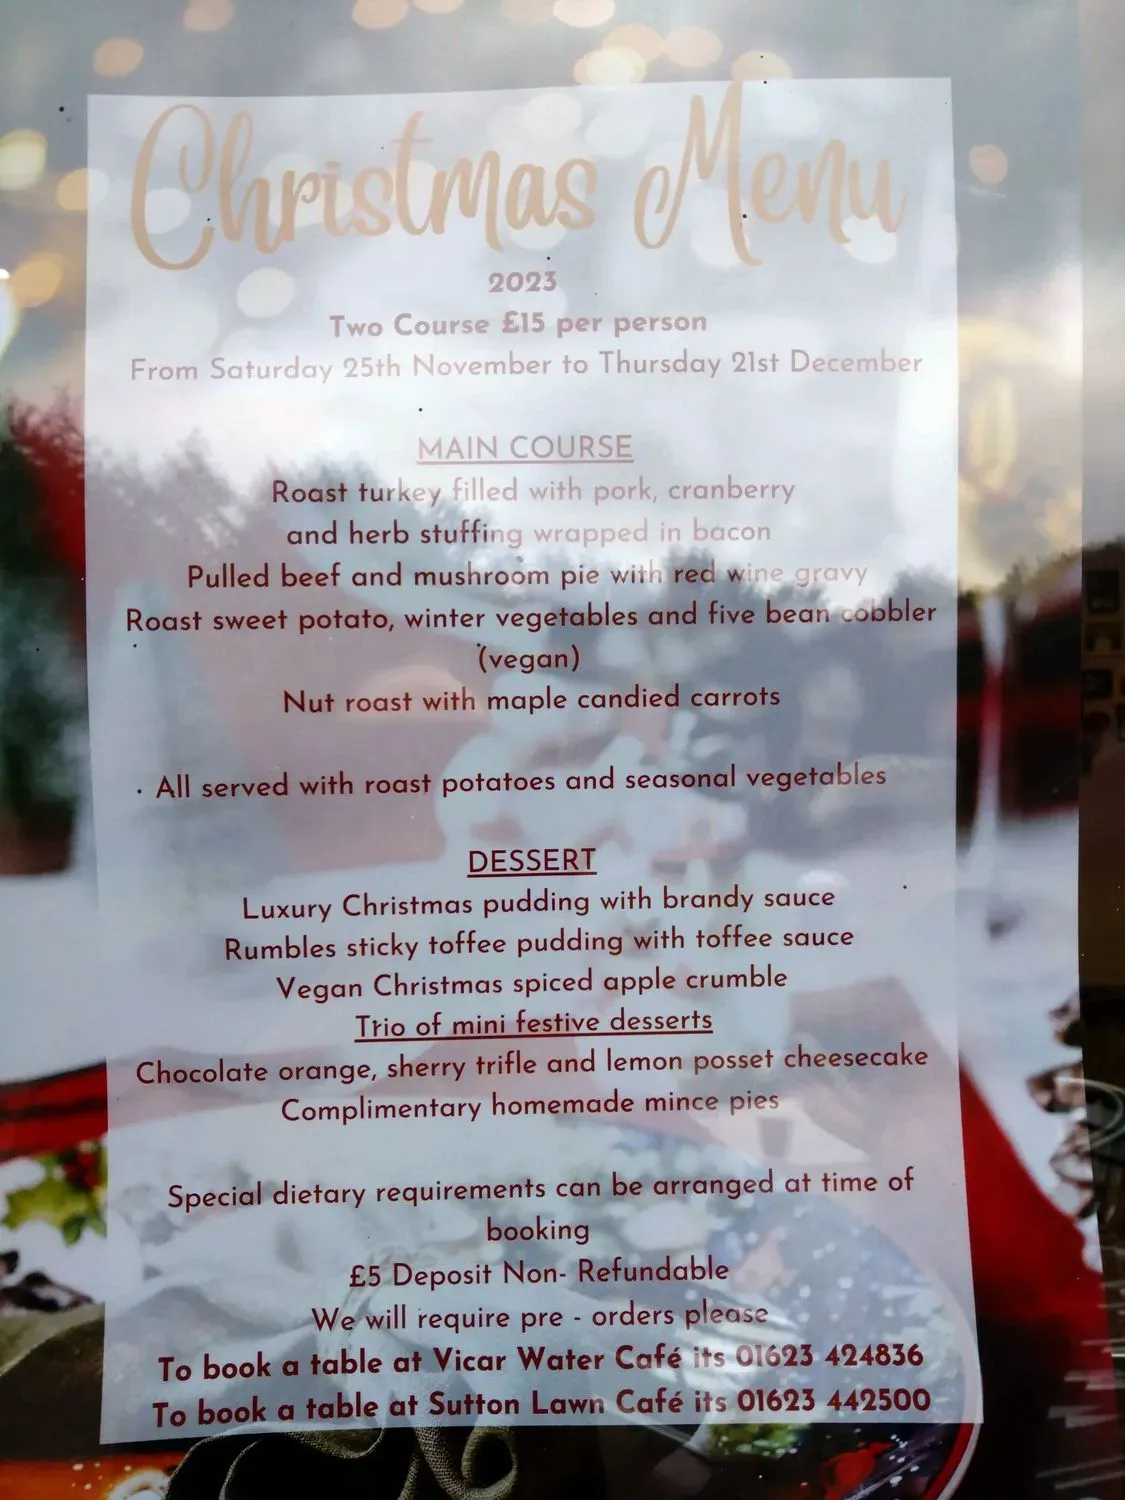 Christmas Menu
2023
Two Course £15 per person
From Saturday 25th November to Thursday 21st December
MAIN COURSE
Roast turkey filled with pork, cranberry
and herb stuffing wrapped in bacon
Pulled beef and mushroom pie with red wine gravy
Roast sweet potato, winter vegetables and five bean cobbler
(vegan)
Nut roast with maple candied carrots
All served with roast potatoes and seasonal vegetables
DESSERT
Luxury Christmas pudding with brandy sauce
Rumbles sticky toffee pudding with toffee sauce
Vegan Christmas spiced apple crumble
Trio of mini festive desserts
Chocolate orange, sherry trifle and lemon posset cheesecake
Complimentary homemade mince pies
Special dietary requirements can be arranged at time of
booking
£5 Deposit Non- Refundable
We will require pre - orders please
To book a table at Vicar Water Café its 01623 424836
To book a table at Sutton Lawn Café its 01623 442500